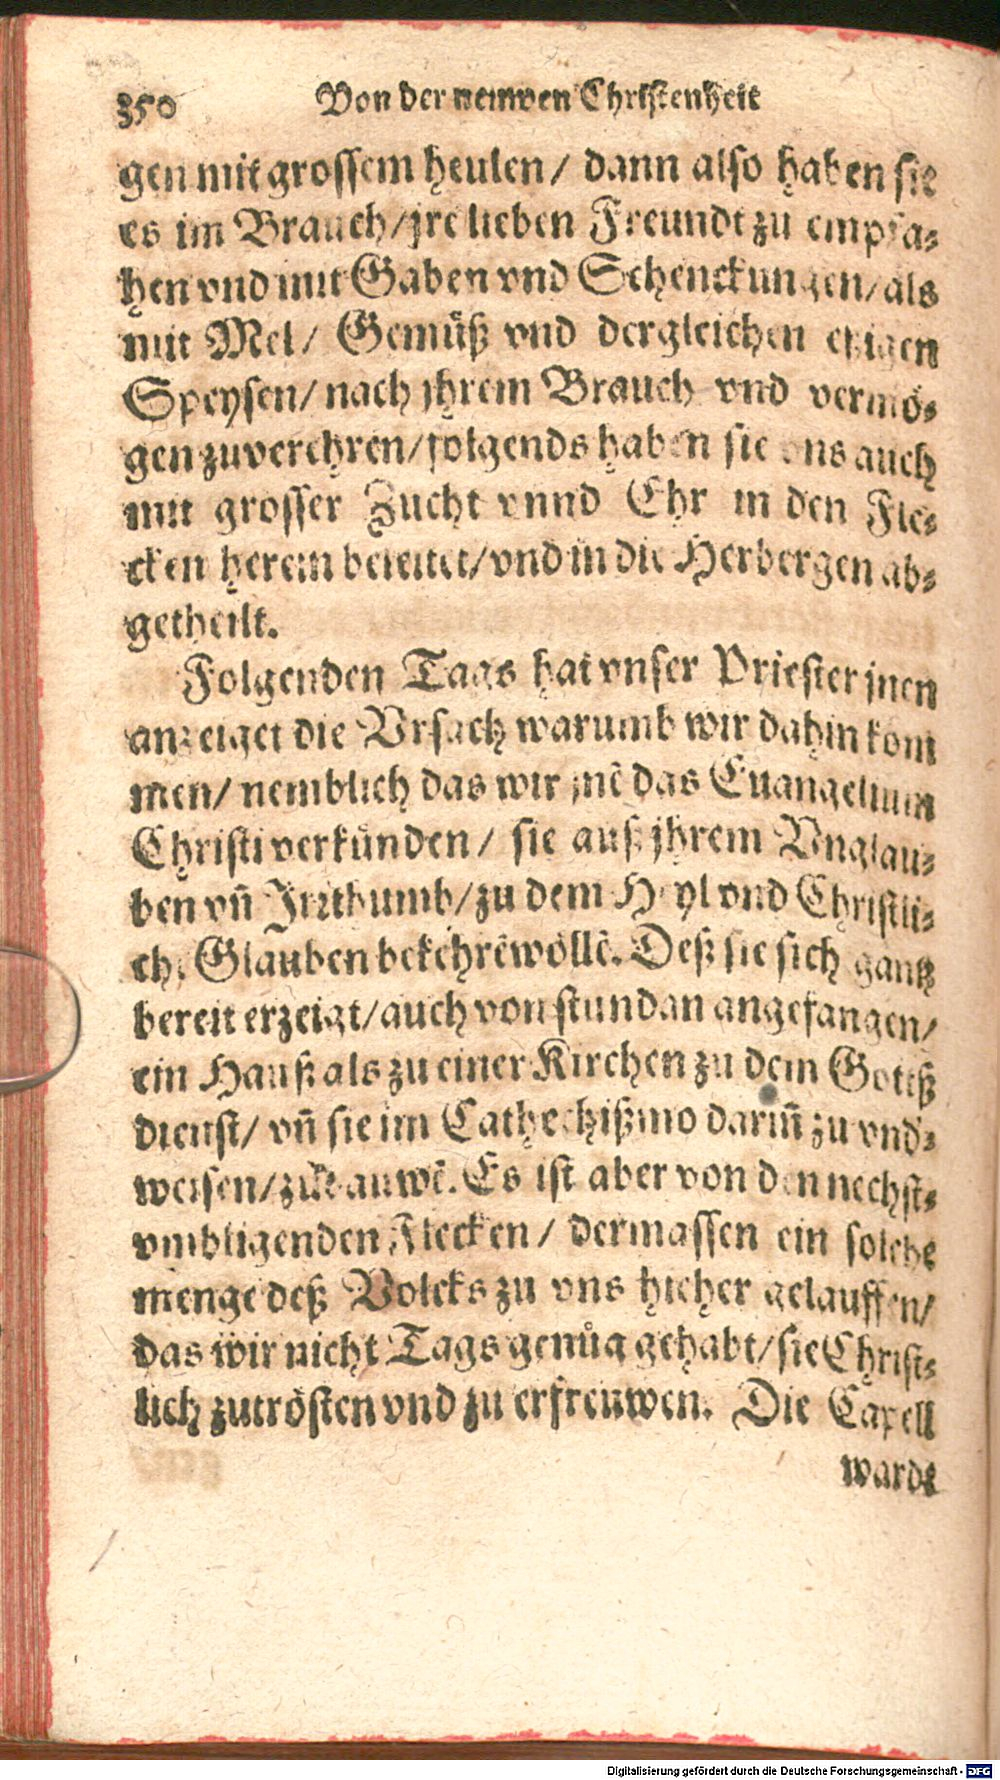 350 Von der neuwen Christenheit
gen mit grossem heulen / dann also haben sie
es im Brauch / jre lieben Freundt zu empfa-
hen vnd mit Gaben vnd Schenckungen / als
mit Mel / Gemüß vnd dergleichen etzigen
Speysen / nach jhrem Brauch vnd vermö-
gen zuverehren / folgends haben sie vns auch
mit grosser Zucht vnnd Ehr in den Fle-
cken herein beleitet / vnd in die Herbergen ab-
getheilt.
Folgenden Tags hat vnser Priester jnen
anzeiget die Vrsach warumb wir dahin kom
men / nemblich das wir jnē das Euangelium
Christi verkünden / sie auß jhrem Vnglau-
ben vn̄ Irrthumb / zu dem Heyl vnd Christli-
chē Glauben bekehrē wöllē. Deß sie sich gantz
bereit erzeigt / auch von stundan angefangen /
ein Hauß als zu einer Kirchen zu dem Gottß
dienst / vn̄ sie im Cathechißmo darin̄ zu vnd-
weisen / zů bauwē. Es ist aber von den nechst-
vmbligenden Flecken / dermassen ein solche
menge deß Volcks zu vns hieher gelauffen /
das wir nicht Tags genůg gehabt / sie Christ-
lich zutrösten vnd zu erfreuwen. Die Capell
warde
Digitalisierung gefördert durch die Deutsche Forschungsgemeinschaft - DFG